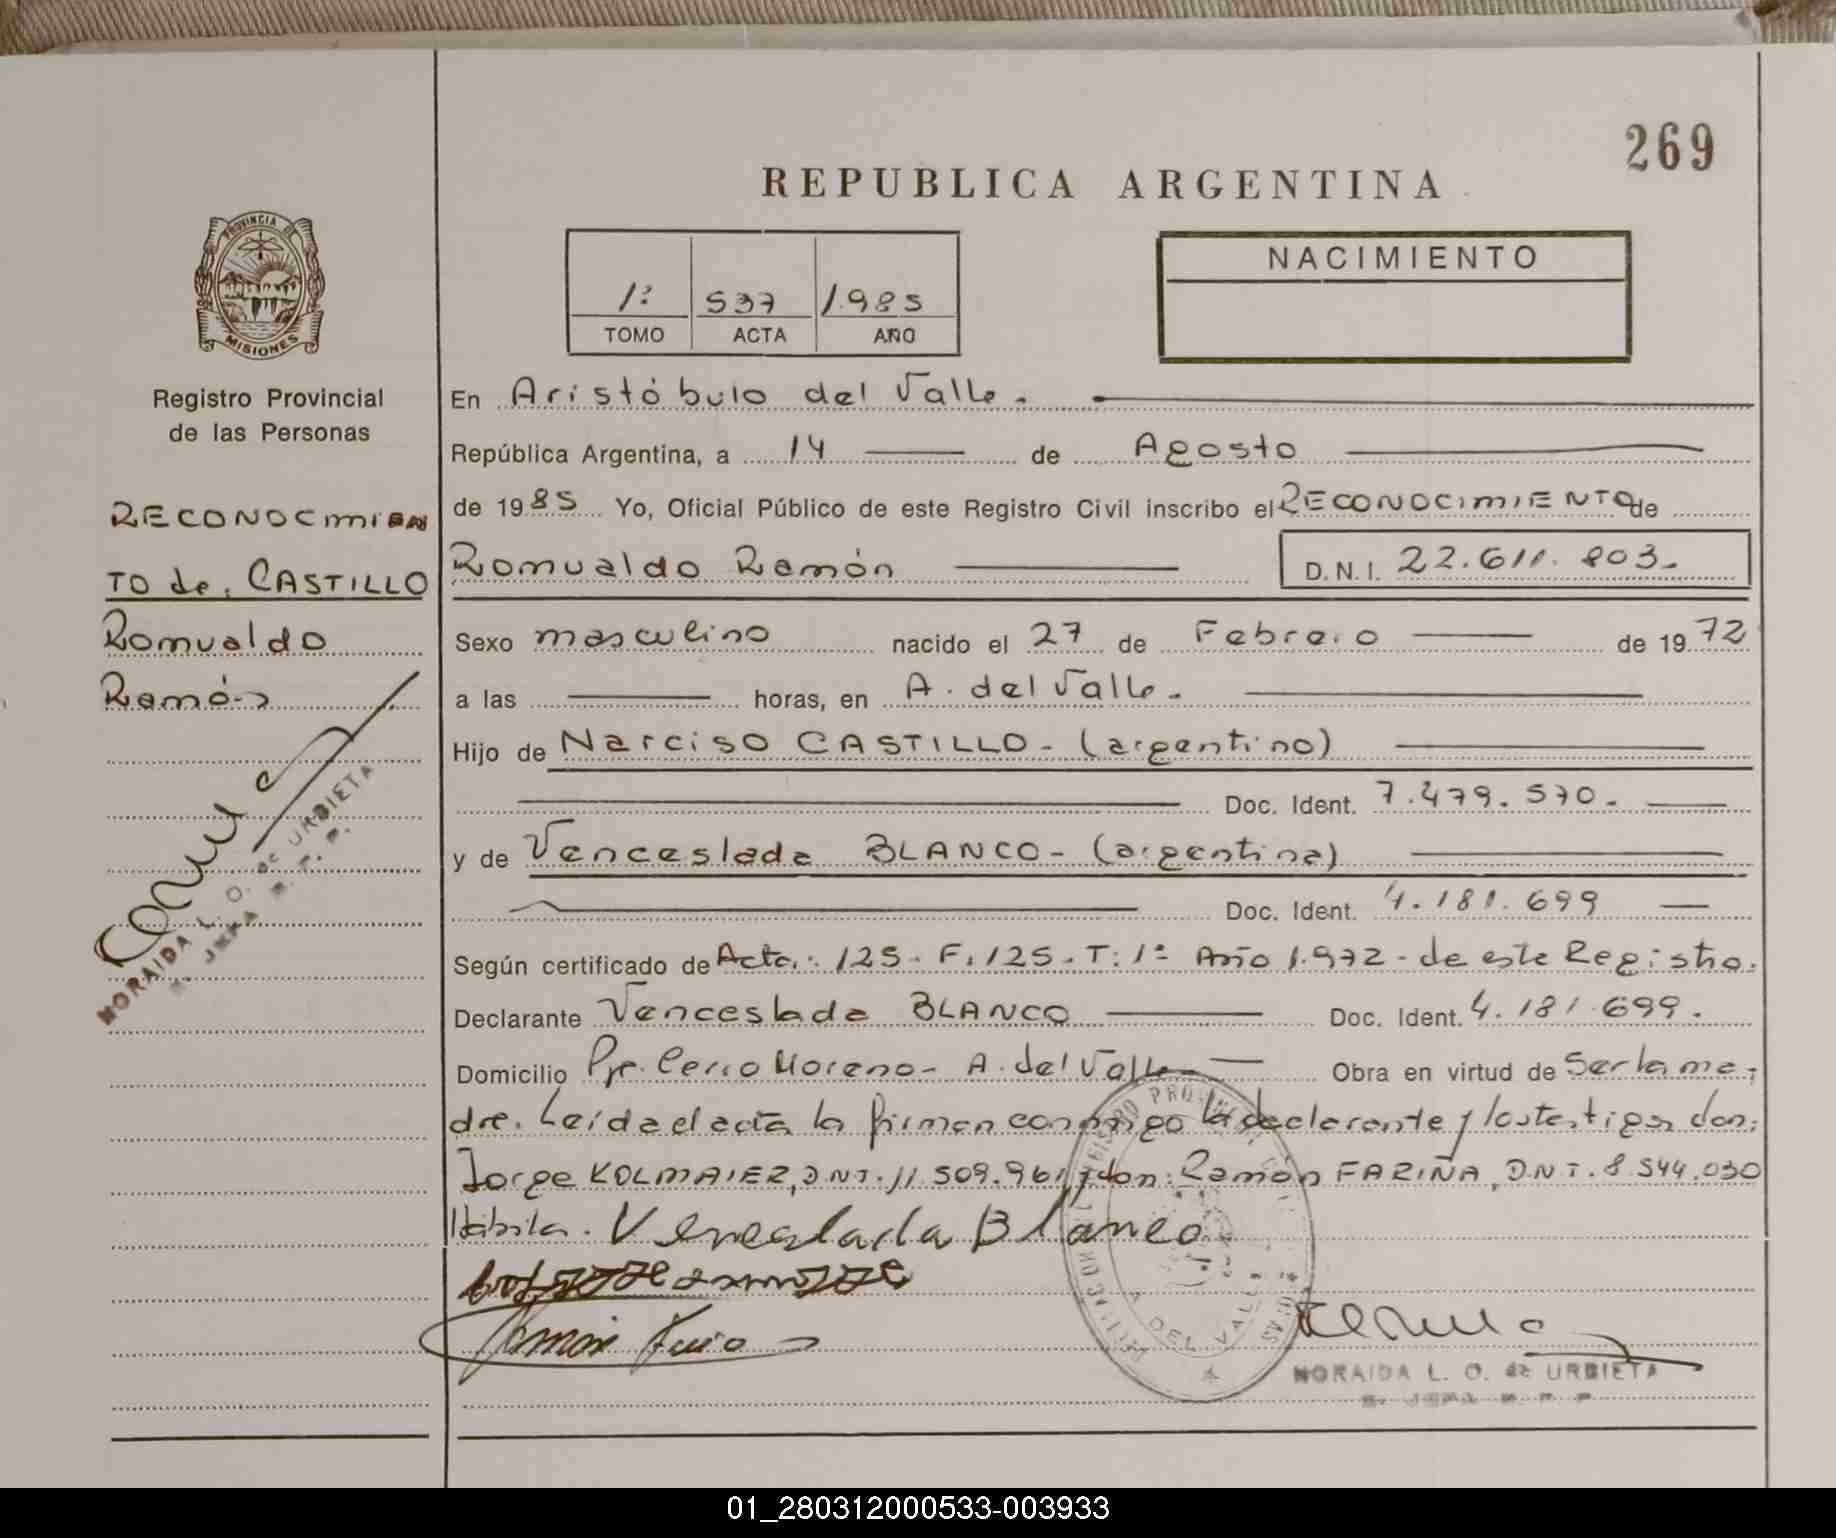 269
REPUBLICA ARGENTINA
PROVINCIA DE
MISIONES
Registro Provincial
de las Personas
1º 537 1.985
TOMO ACTA AÑO
NACIMIENTO
RECONOCIMIEN
TO de. CASTILLO
Romualdo
Ramón
NORAIDA L. O. de URBIETA
En Aristóbulo del Valle.
República Argentina, a 14 de Agosto
de 1985 Yo, Oficial Público de este Registro Civil inscribo el RECONOCIMIENTO de
Romualdo Ramón D.N.I. 22.611.803.
Sexo masculino nacido el 27 de Febrero de 1972
a las horas, en A. del Valle.
Hijo de Narciso CASTILLO- (argentino)
Doc. Ident. 7.479.570.
y de Venceslada BLANCO- (argentina)
Doc. Ident. 4.181.699
Según certificado de Acta: 125- F. 125. T: 1º Año 1.972- de este Registro.
Declarante Venceslada BLANCO Doc. Ident. 4.181.699.
Domicilio Cerro Moreno- A. del Valle Obra en virtud de Ser la ma-
dre. Leída el acta la firman conmigo la declarante y los testigos don:
Jorge KOLMAIER, D.N.I. 11.509.961 y don: Ramón FARIÑA, D.N.I. 8.544.030
Venceslada Blanco
A. DEL VALLE
NORAIDA L. O. de URBIETA
01_280312000533-003933